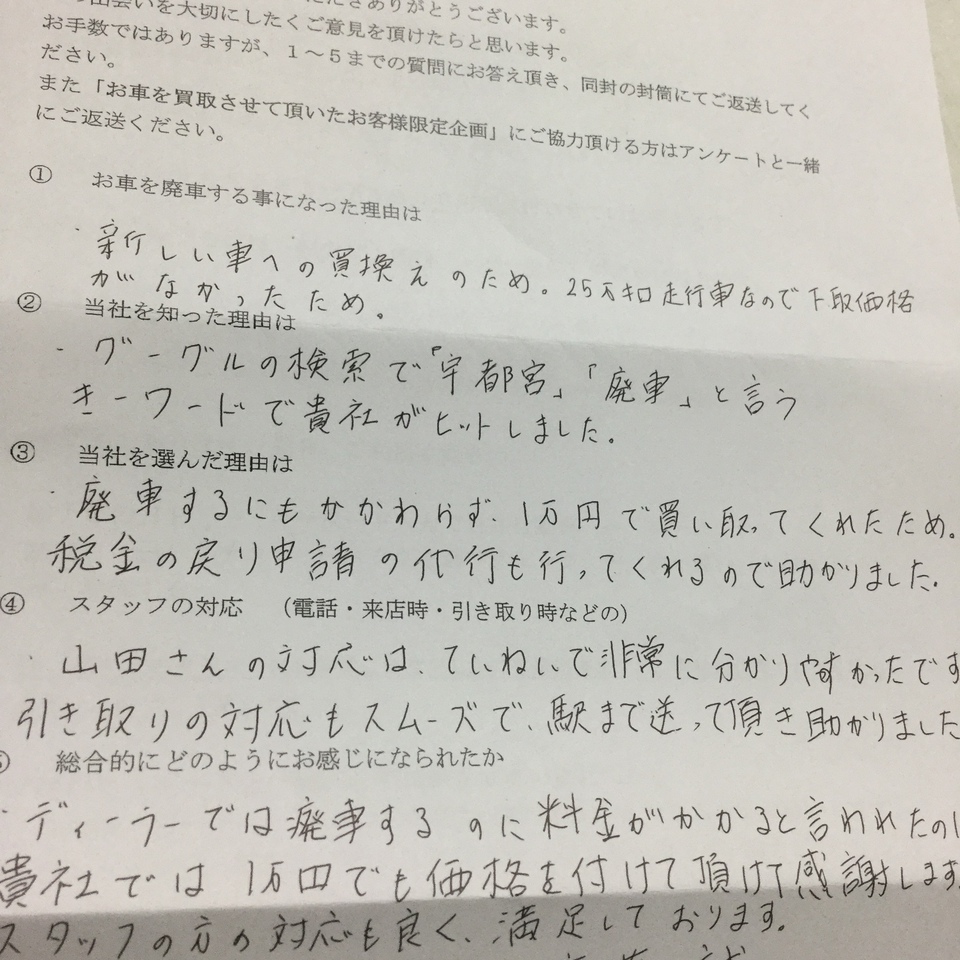 の出会いを大切にしたくご意見を頂けたらと思います。
お手数ではありますが、１～５までの質問にお答え頂き、同封の封筒にてご返送してく
ださい。
また「お車を買取させて頂いたお客様限定企画」にご協力頂ける方はアンケートと一緒
にご返送ください。
① お車を廃車する事になった理由は
・新しい車への買換えのため。25万キロ走行車なので下取価格
がなかったため。
② 当社を知った理由は
・グーグルの検索で「宇都宮」「廃車」と言う
きーワードで貴社がヒットしました。
③ 当社を選んだ理由は
・廃車するにもかかわらず、1万円で買い取ってくれたため。
税金の戻り申請の代行も行ってくれるので助かりました。
④ スタッフの対応 （電話・来店時・引き取り時などの）
・山田さんの対応は、ていねいで非常に分かりやすかったです
引き取りの対応もスムーズで、駅まで送って頂き助かりました
総合的にどのようにお感じになられたか
・ディーラーでは廃車するのに料金がかかると言われたのに
貴社では1万円でも価格を付けて頂けて感謝します
スタッフの方の対応も良く、満足しております。